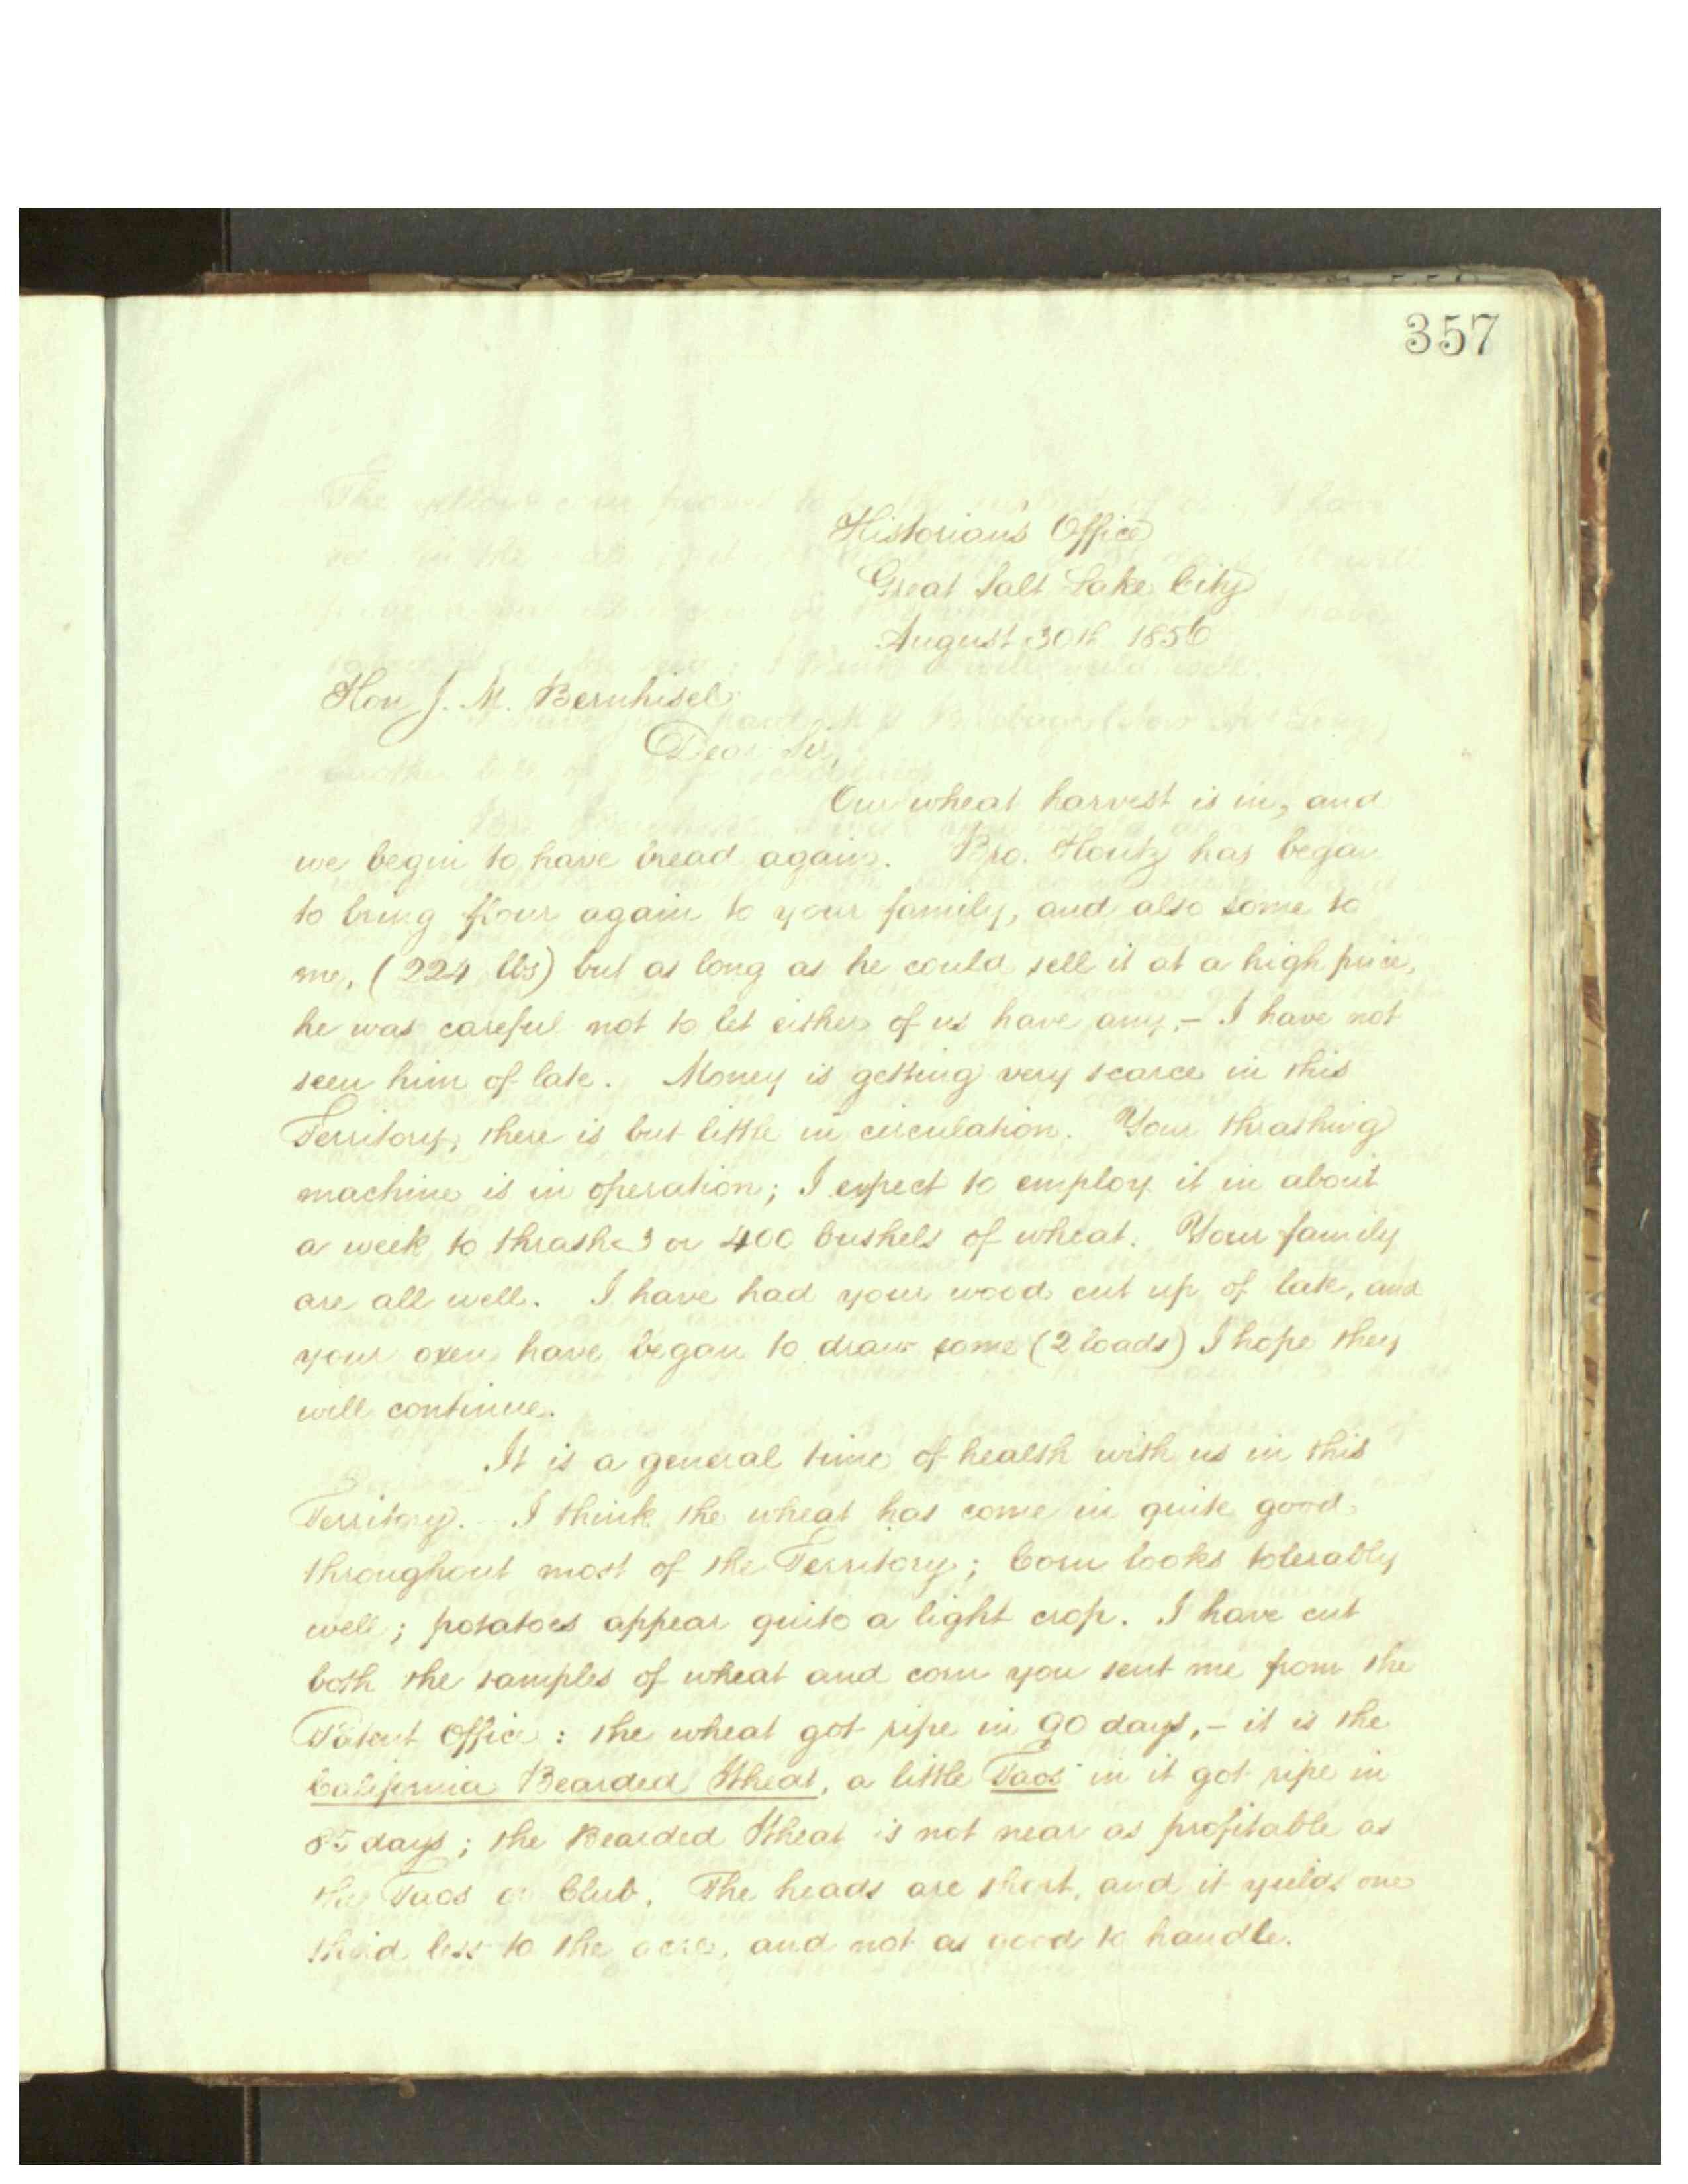 357
Historian's Office
Great Salt Lake City
August 30th 1856
Hon J. M. Bernhisel
Dear Sir,
Our wheat harvest is in, and
we begin to have bread again. Bro. Houtz has began
to bring flour again to your family, and also some to
me, (224 lbs) but as long as he could sell it at a high price,
he was careful not to let either of us have any,- I have not
seen him of late. Money is getting very scarce in this
Territory, there is but little in circulation. Your thrashing
machine is in operation; I expect to employ it in about
a week to thrash 3 or 400 bushels of wheat. Your family
are all well. I have had your wood cut up of late, and
your oxen have began to draw some (2 loads) I hope they
will continue.
It is a general time of health with us in this
Territory. I think the wheat has come in quite good
throughout most of the Territory; Corn looks tolerably
well; potatoes appear quite a light crop. I have cut
both the samples of wheat and corn you sent me from the
Patent Office: the wheat got ripe in 90 days,- it is the
California Bearded Wheat, a little Taos in it got ripe in
85 days; the Bearded Wheat is not near as profitable as
the Taos or Club. The heads are short, and it yields one
third less to the acre, and not as good to handle.